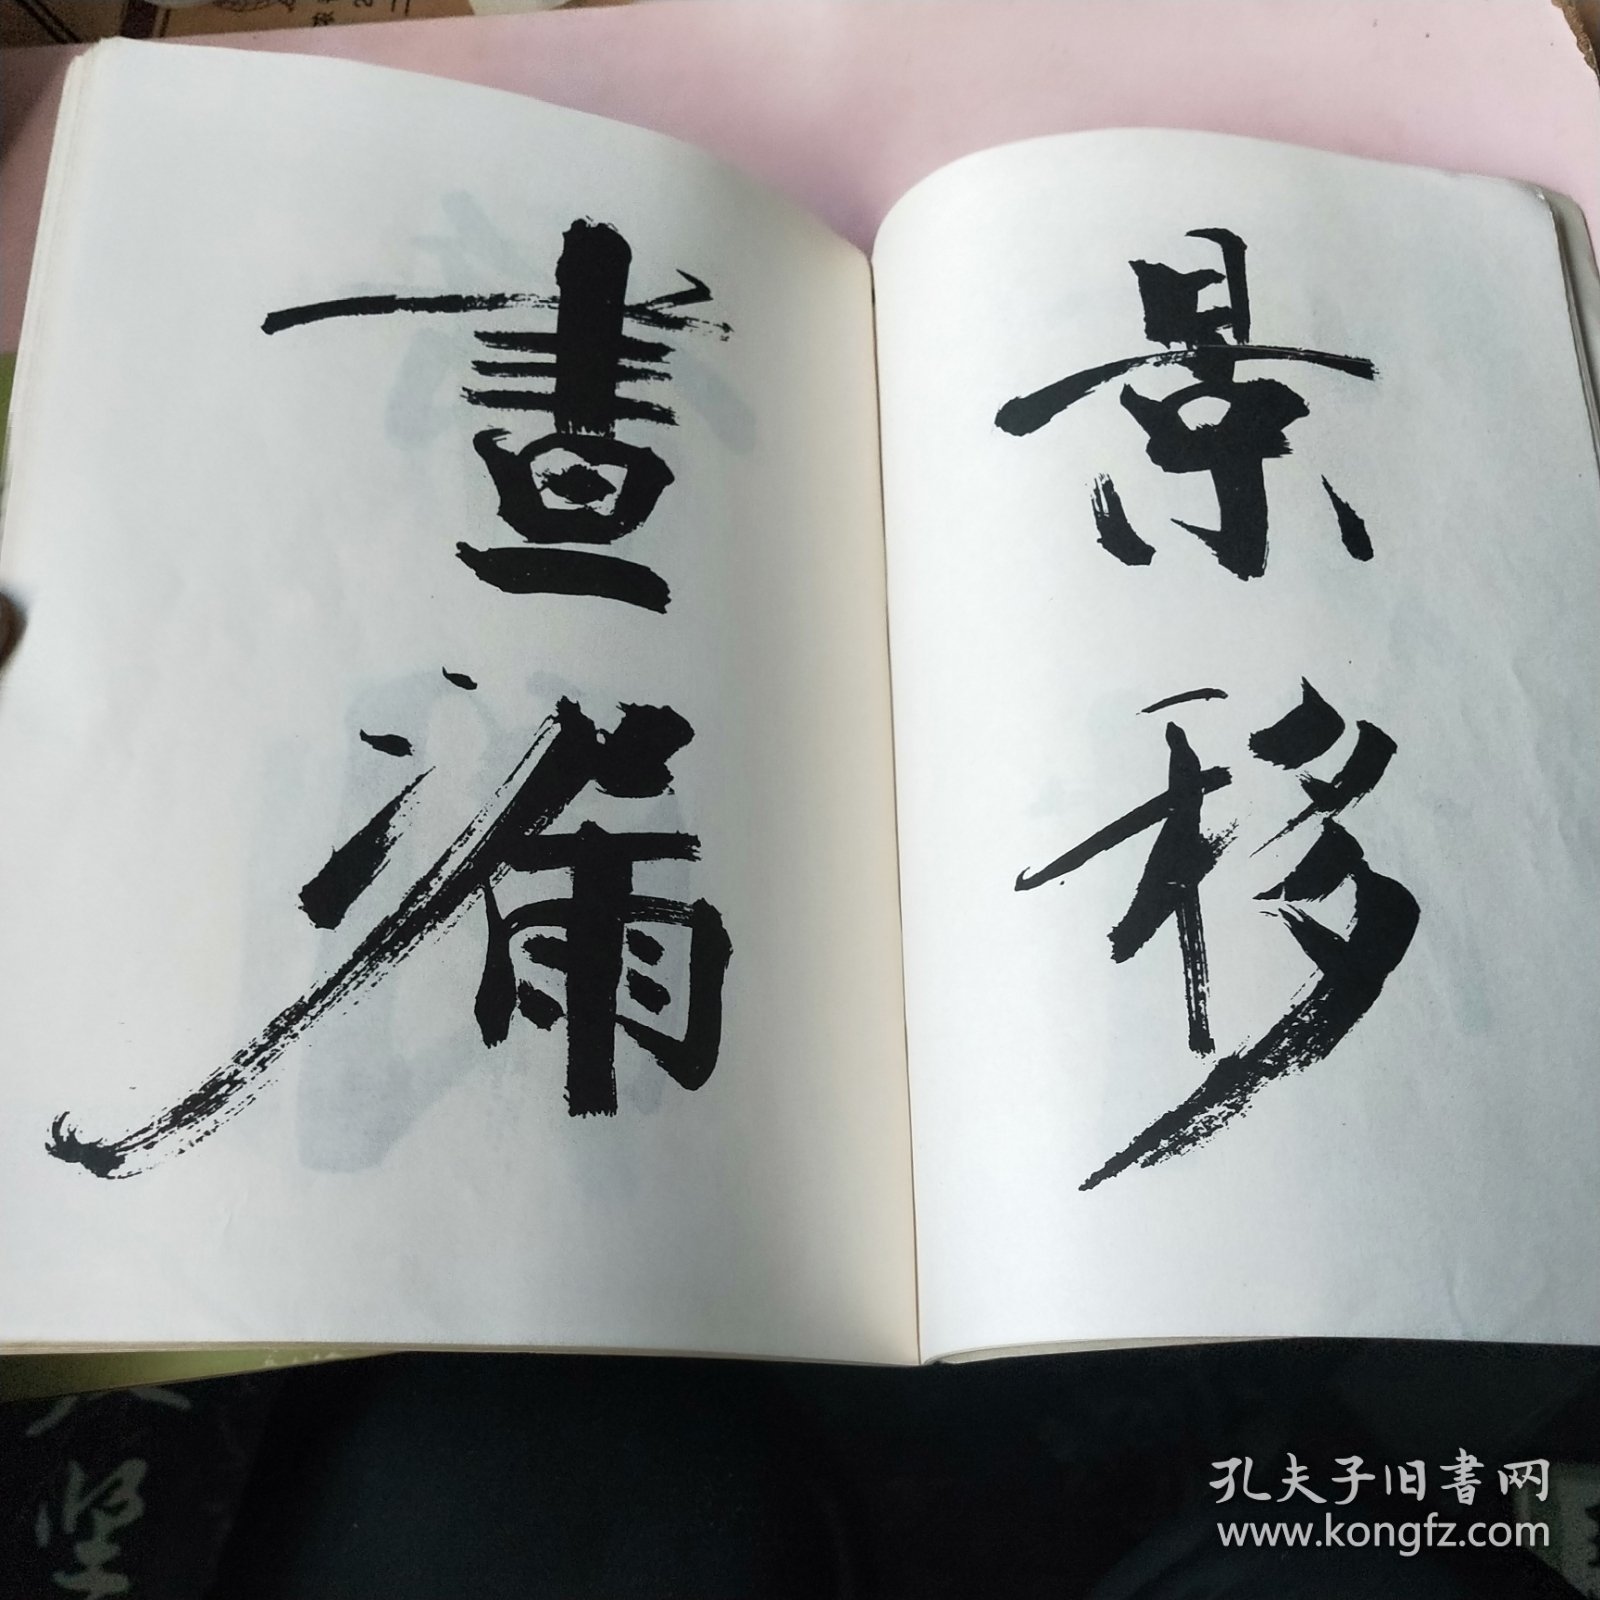 景移
晝漏
坚
孔夫子旧書网
www.kongfz.com